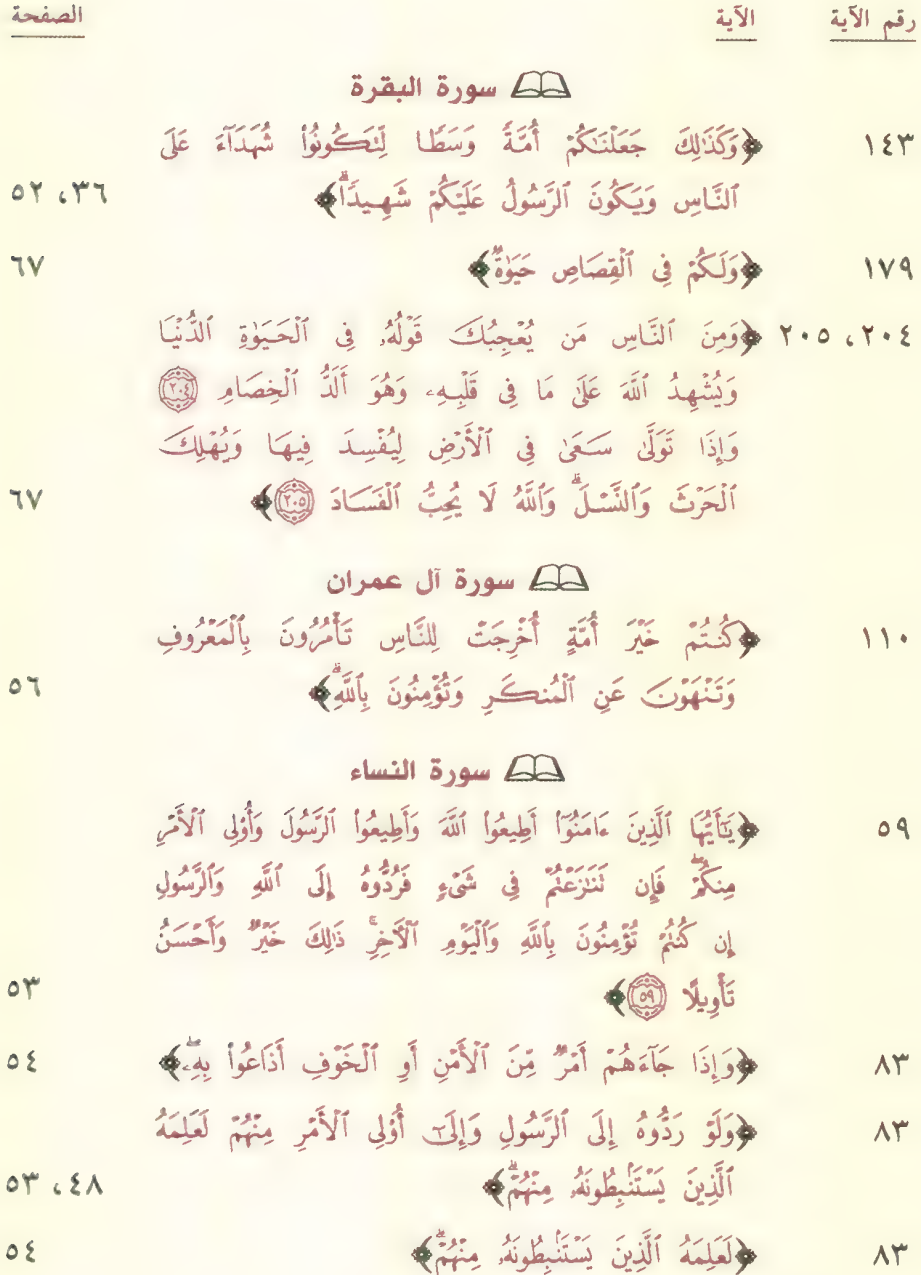 رقم الآية الآية الصفحة
سورة البقرة
١٤٣ ﴿وَكَذَٰلِكَ جَعَلْنَٰكُمْ أُمَّةً وَسَطًا لِّتَكُونُوا۟ شُهَدَآءَ عَلَى
ٱلنَّاسِ وَيَكُونَ ٱلرَّسُولُ عَلَيْكُمْ شَهِيدًاۗ﴾ ٣٦، ٥٢
١٧٩ ﴿وَلَكُمْ فِى ٱلْقِصَاصِ حَيَوٰةٌۭ﴾ ٦٧
٢٠٤، ٢٠٥ ﴿وَمِنَ ٱلنَّاسِ مَن يُعْجِبُكَ قَوْلُهُۥ فِى ٱلْحَيَوٰةِ ٱلدُّنْيَا
وَيُشْهِدُ ٱللَّهَ عَلَىٰ مَا فِى قَلْبِهِۦ وَهُوَ أَلَدُّ ٱلْخِصَامِ ٢٠٤
وَإِذَا تَوَلَّىٰ سَعَىٰ فِى ٱلْأَرْضِ لِيُفْسِدَ فِيهَا وَيُهْلِكَ
ٱلْحَرْثَ وَٱلنَّسْلَۗ وَٱللَّهُ لَا يُحِبُّ ٱلْفَسَادَ ٢٠٥﴾ ٦٧
سورة آل عمران
١١٠ ﴿كُنتُمْ خَيْرَ أُمَّةٍ أُخْرِجَتْ لِلنَّاسِ تَأْمُرُونَ بِٱلْمَعْرُوفِ
وَتَنْهَوْنَ عَنِ ٱلْمُنكَرِ وَتُؤْمِنُونَ بِٱللَّهِۗ﴾ ٥٦
سورة النساء
٥٩ ﴿يَٰٓأَيُّهَا ٱلَّذِينَ ءَامَنُوٓا۟ أَطِيعُوا۟ ٱللَّهَ وَأَطِيعُوا۟ ٱلرَّسُولَ وَأُو۟لِى ٱلْأَمْرِ
مِنكُمْۖ فَإِن تَنَٰزَعْتُمْ فِى شَىْءٍ فَرُدُّوهُ إِلَى ٱللَّهِ وَٱلرَّسُولِ
إِن كُنتُمْ تُؤْمِنُونَ بِٱللَّهِ وَٱلْيَوْمِ ٱلْءَاخِرِۚ ذَٰلِكَ خَيْرٌ وَأَحْسَنُ
تَأْوِيلًا ٥٩﴾ ٥٣
٨٣ ﴿وَإِذَا جَآءَهُمْ أَمْرٌ مِّنَ ٱلْأَمْنِ أَوِ ٱلْخَوْفِ أَذَاعُوا۟ بِهِۦۖ﴾ ٥٤
٨٣ ﴿وَلَوْ رَدُّوهُ إِلَى ٱلرَّسُولِ وَإِلَىٰٓ أُو۟لِى ٱلْأَمْرِ مِنْهُمْ لَعَلِمَهُ
ٱلَّذِينَ يَسْتَنۢبِطُونَهُۥ مِنْهُمْۗ﴾ ٤٨، ٥٣
٨٣ ﴿لَعَلِمَهُ ٱلَّذِينَ يَسْتَنۢبِطُونَهُۥ مِنْهُمْۗ﴾ ٥٤